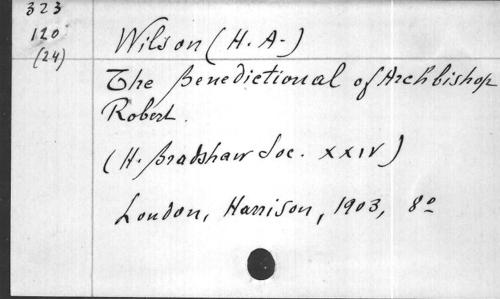 323
120
(24)
Wilson (H. A.)
The Benedictional of Archbishop
Robert.
(H. Bradshaw Soc. XXIV)
London, Harrison, 1903, 8º